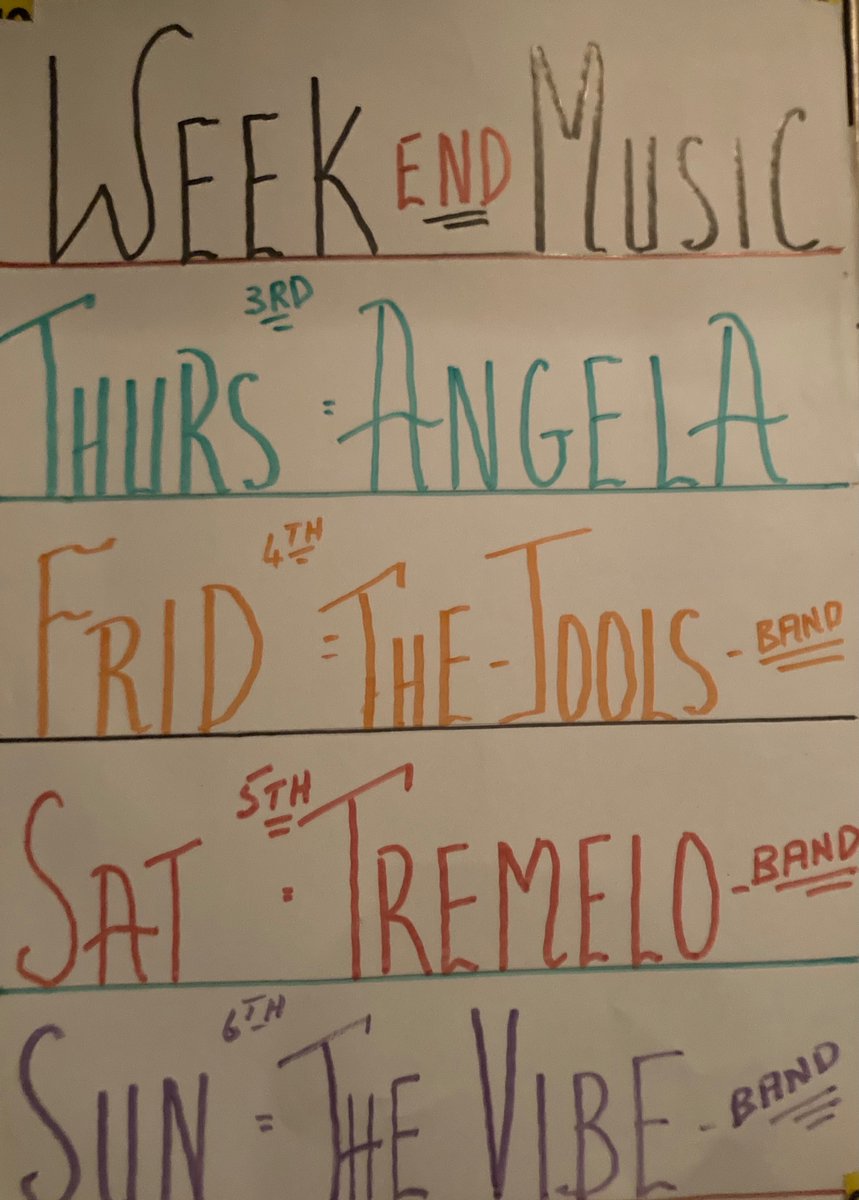 WEEK END MUSIC
THURS 3RD = ANGELA
FRID 4TH = THE - JOOLS - BAND
SAT 5TH = TREMELO - BAND
SUN 6TH = THE VIBE - BAND